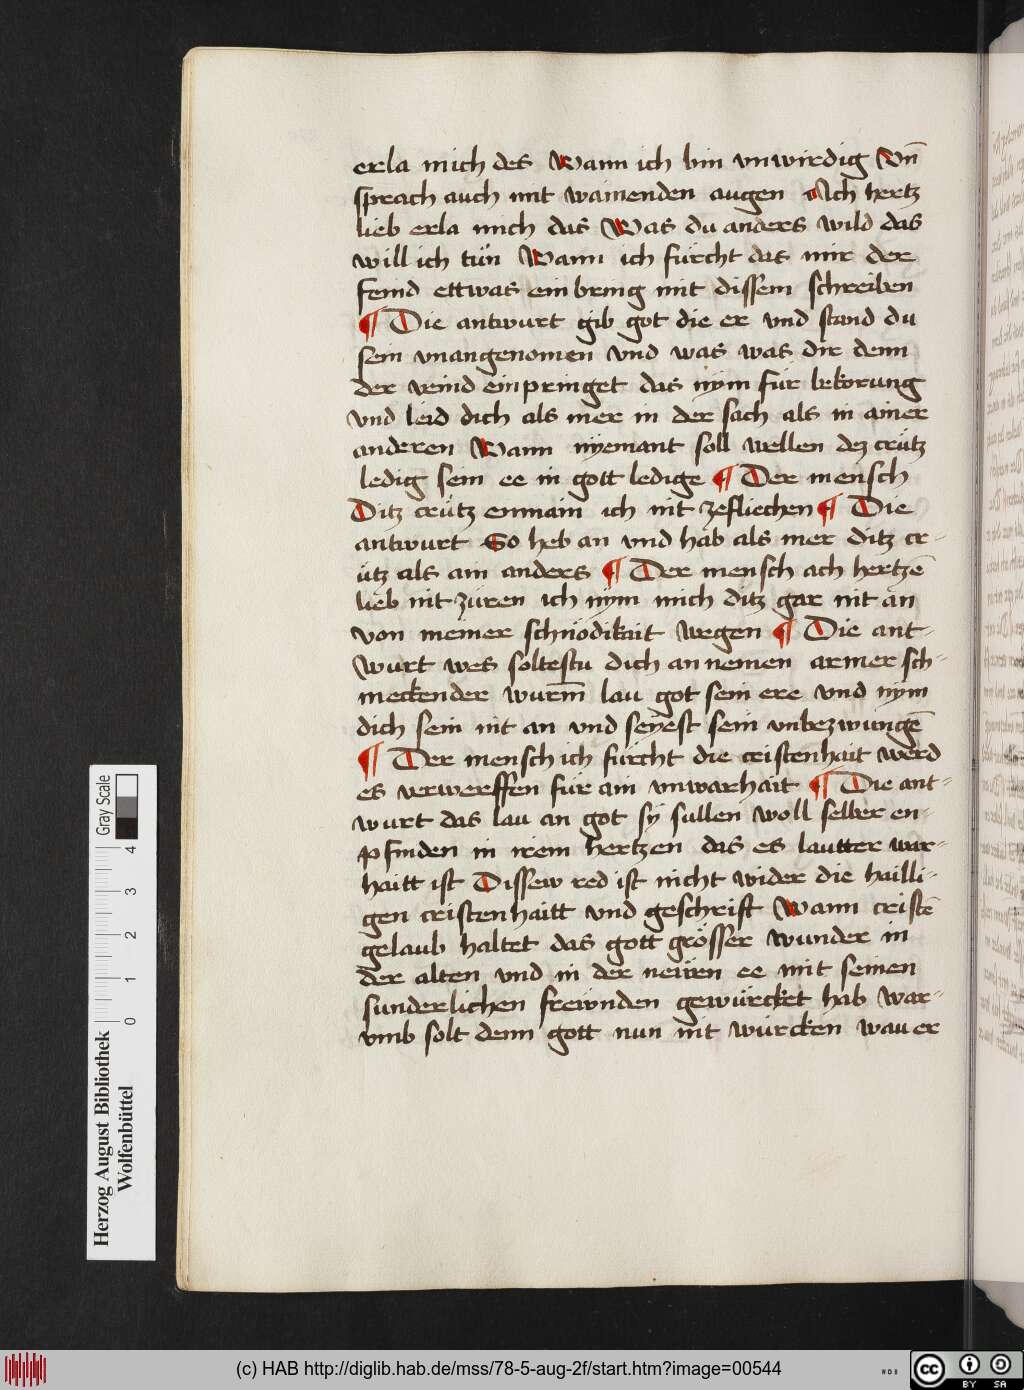 erla mich des Wann ich bin vnwirdig Vn̄
sprach auch mit wainenden augen Ach hertz
lieb erla mich das Was du anders wild das
will ich tün Wann ich fürcht das mir der
feind ettwas einbring mit dissem schreiben
¶ Die antwurt gib got die er vnd stand du
sein vnangenomen vnd was was dir denn
der veind einpringet das nÿm für bekorung
vnd leid dich als mer in der sach als in ainer
anderen Wann nÿemant soll wellen dez crütz
ledig sein ee in gott ledige ¶ Der mensch
Ditz crütz enmain ich nit zefliechen ¶ Die
antwurt So heb an vnd hab als mer ditz cr-
ütz als ain anders ¶ Der mensch ach hertzē
lieb nit züren ich nÿm mich ditz gar nit an
von meiner schnödikait wegen ¶ Die ant-
wurt wes soltestu dich an nemen armer sch-
meckender wurm̄ lau got sein ere vnd nÿm
dich sein nit an vnd seÿest sein vnbezwungē
¶ Der mensch ich fürcht die cristenhait werd
es verwerffen für ain vnwarhait ¶ Die ant-
wurt das lau an got sÿ sullen woll selber en-
pfinden in irem hertzen das es lautter war-
haitt ist Dissew red ist nicht wider die hailli-
gen cristenhaitt vnd geschrift Wann cristē
gelaub haltet das gott grösser wunder in
der alten vnd in der neüen ee mit seinen
sunderlichen freẅnden gewürcket hab war-
vmb solt denn gott nun nit würcken wau er
Herzog August Bibliothek
Wolfenbüttel
Gray Scale
0 1 2 3 4
(c) HAB http://diglib.hab.de/mss/78-5-aug-2f/start.htm?image=00544
WDB
cc BY SA